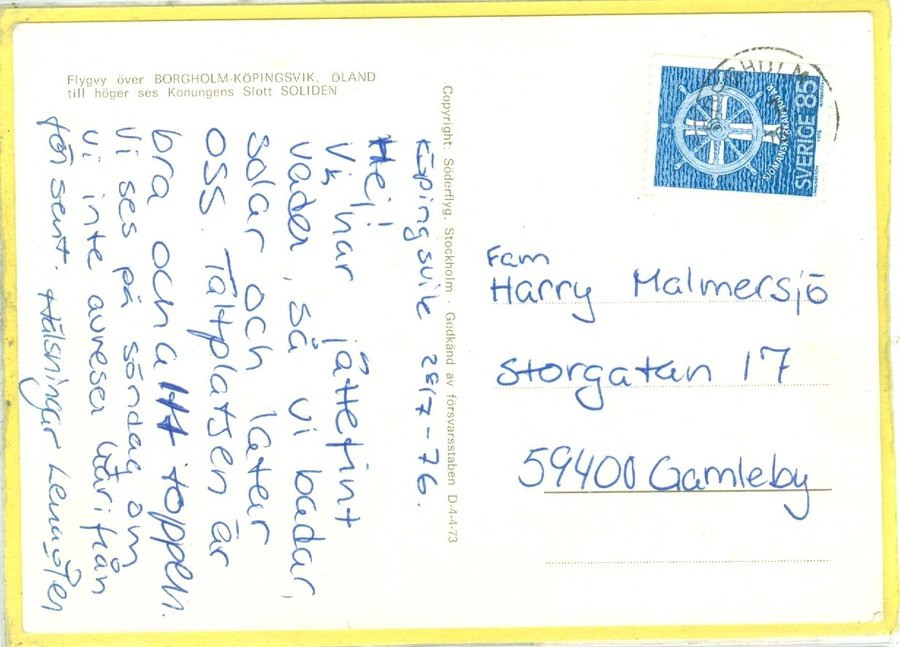 Flygvy över BORGHOLM-KÖPINGSVIK, ÖLAND
till höger ses Konungens Slott SOLIDEN
Köpingsvik 28/7-76.
Hej!
Vi har jättefint
väder, så vi badar,
solar och latar
oss. Tältplatsen är
bra och allt toppen.
Vi ses på söndag om
vi inte avreser härifrån
för sent. Hälsningar
Copyright: Söderflyg, Stockholm · Godkänd av försvarsstaben D-4-4-73
BORGHOLM
SVERIGE 85
SJÖMANSKYRKAN 100 ÅR
1976
Fam
Harry Malmersjö
Storgatan 17
59400 Gamleby